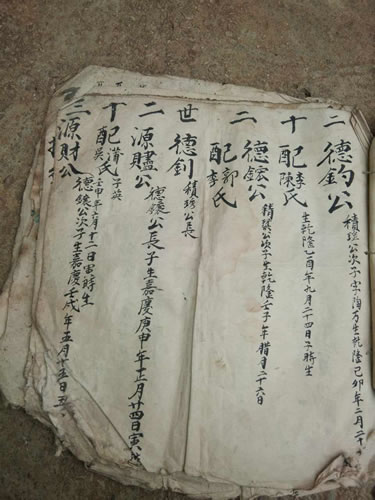 二德鈞公 公次子字陶万生乾隆己卯年二月二十
十配李陳氏 生乾隆乙酉年九月二十四日子時生
二德公 公次子生乾隆壬子年腊月二十六日
配郭李氏
世德釗 積珍公長
二源公 德公長子生嘉慶庚申年正月廿四日寅
十配氏 壬申年六月十二日寅時生
三源財公 德公次子生嘉慶壬戌年五月十五日丑